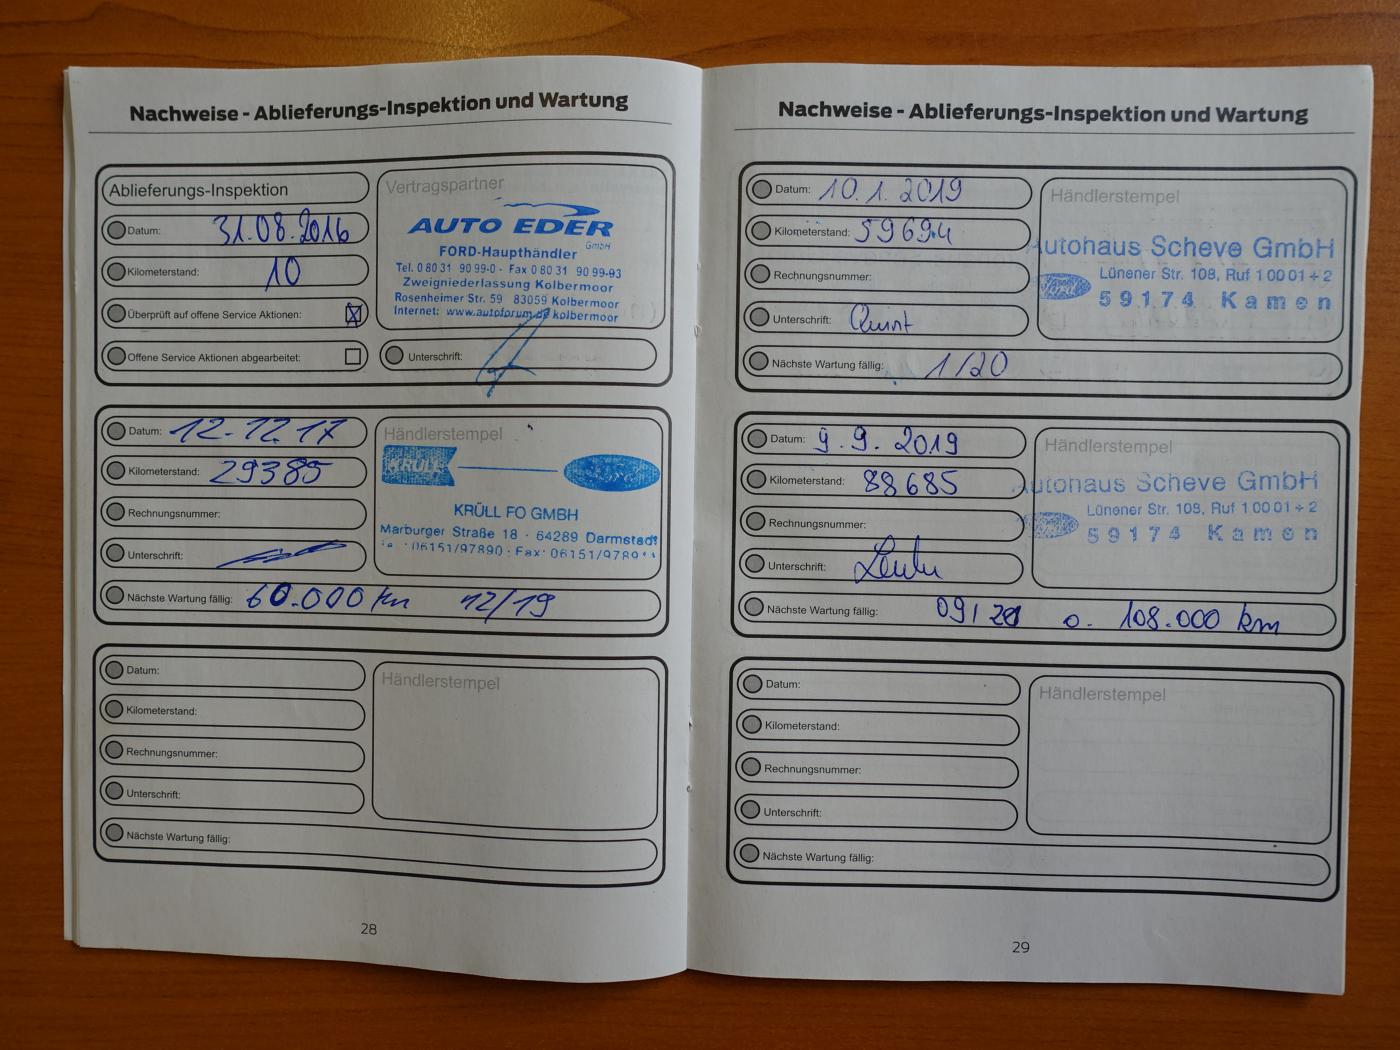 Nachweise - Ablieferungs-Inspektion und Wartung
Ablieferungs-Inspektion
Datum: 31.08.2016
Kilometerstand: 10
Überprüft auf offene Service Aktionen: ☒
Offene Service Aktionen abgearbeitet: ☐
Vertragspartner
AUTO EDER
GmbH
FORD-Haupthändler
Tel. 0 80 31 90 99-0 · Fax 0 80 31 90 99-93
Zweigniederlassung Kolbermoor
Rosenheimer Str. 59 83059 Kolbermoor
Internet: www.autoforum.de/kolbermoor
Unterschrift:
Datum: 12.12.17
Kilometerstand: 29385
Rechnungsnummer:
Unterschrift:
Nächste Wartung fällig: 60.000 km 12/19
Händlerstempel
KRÜLL
Ford
KRÜLL FO GMBH
Marburger Straße 18 · 64289 Darmstadt
06151/97890 · Fax: 06151/9789
Datum:
Kilometerstand:
Rechnungsnummer:
Unterschrift:
Nächste Wartung fällig:
Händlerstempel
28
Nachweise - Ablieferungs-Inspektion und Wartung
Datum: 10.1.2019
Kilometerstand: 59694
Rechnungsnummer:
Unterschrift:
Nächste Wartung fällig: 1/20
Händlerstempel
utohaus Scheve GmbH
Ford
Lünener Str. 108, Ruf 1 00 01 ÷ 2
59174 Kamen
Datum: 9.9.2019
Kilometerstand: 88685
Rechnungsnummer:
Unterschrift:
Nächste Wartung fällig: 09/20 o. 108.000 km
Händlerstempel
utohaus Scheve GmbH
Lünener Str. 108, Ruf 1 00 01 ÷ 2
59174 Kamen
Datum:
Kilometerstand:
Rechnungsnummer:
Unterschrift:
Nächste Wartung fällig:
Händlerstempel
29